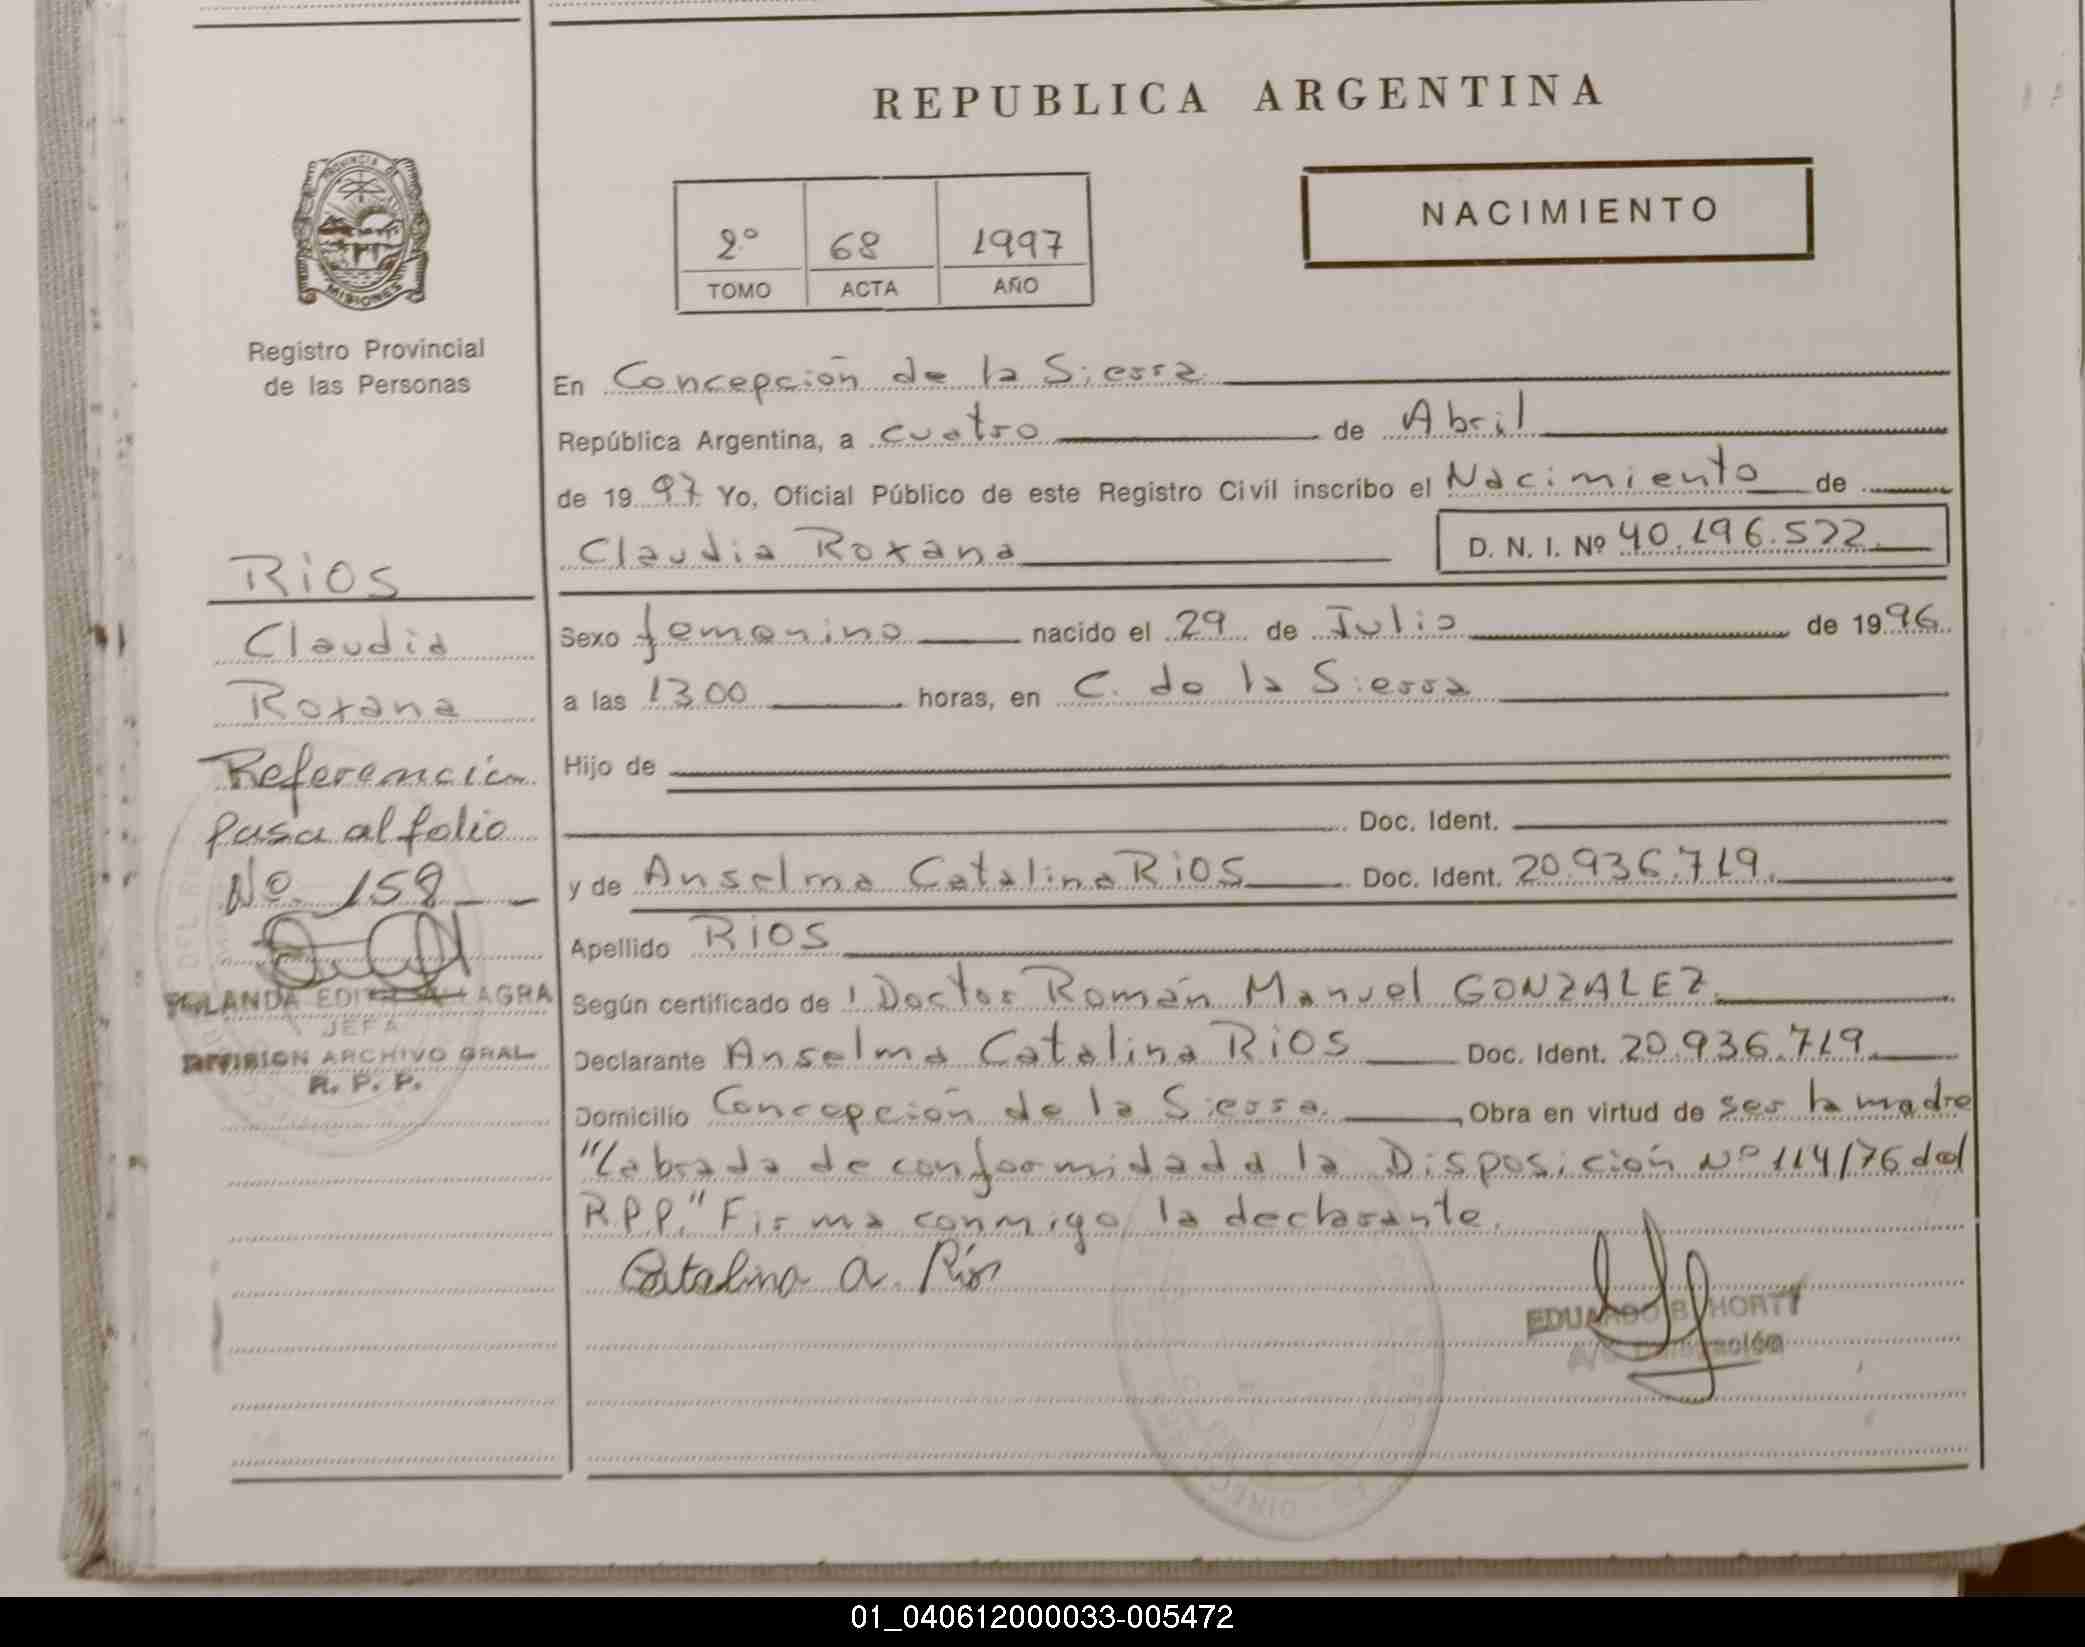 REPUBLICA ARGENTINA
PROVINCIA DE
MISIONES
Registro Provincial
de las Personas
2º 68 1997
TOMO ACTA AÑO
NACIMIENTO
En Concepción de la Sierra
República Argentina, a cuatro de Abril
de 1997 Yo, Oficial Público de este Registro Civil inscribo el Nacimiento de
Claudia Roxana D. N. I. Nº 40.196.522
Sexo femenino nacido el 29 de Julio de 1996
a las 13.00 horas, en C. de la Sierra
Hijo de
Doc. Ident.
y de Anselma Catalina RIOS Doc. Ident. 20.936.719.
Apellido RIOS
Según certificado de Doctor Román Manuel GONZALEZ
Declarante Anselma Catalina RIOS Doc. Ident. 20.936.719
Domicilio Concepción de la Sierra. , Obra en virtud de ser la madre
"Labrada de conformidad a la Disposición Nº 114/76 del
R.P.P." Firma conmigo la declarante.
Catalina A. Ríos
EDUARDO B. HORTT
RIOS
Claudia
Roxana
Referencia
pasa al folio
Nº. 158
JEFA
DIVISION ARCHIVO GRAL
R. P. P.
01_040612000033-005472